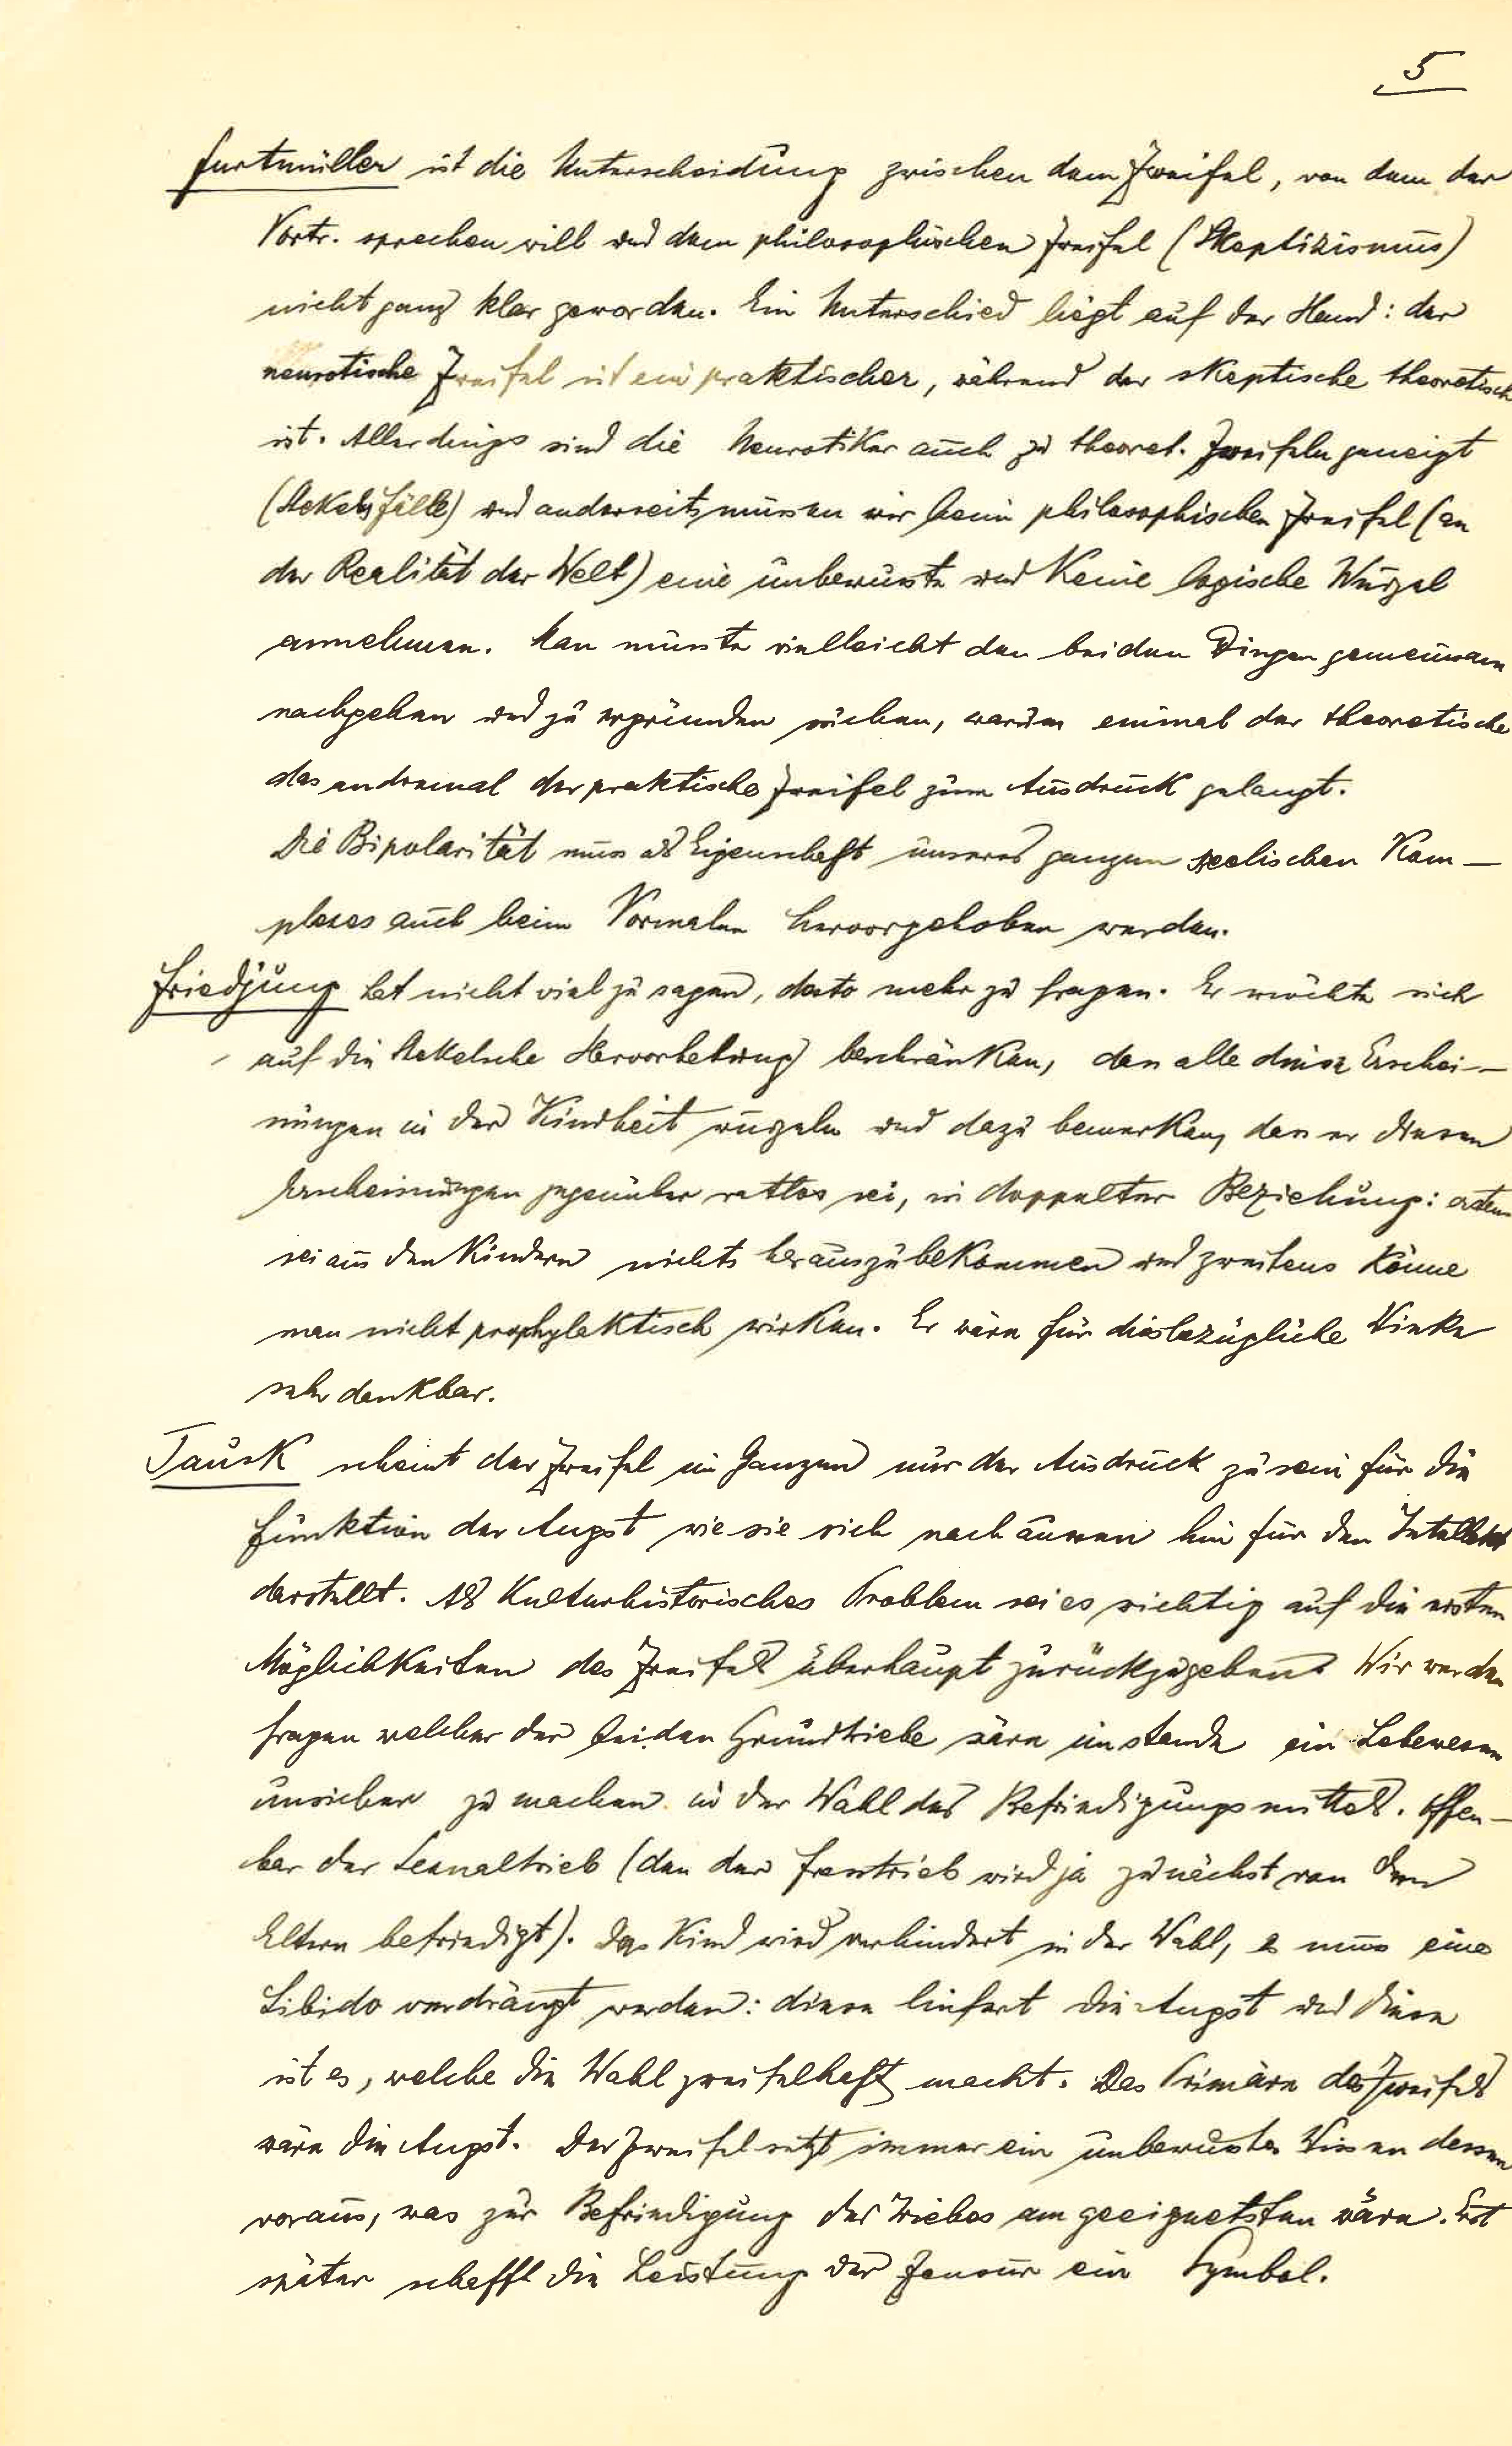 5
Furtmüller ist die Unterscheidung zwischen dem Zweifel, von dem der
Vortr. sprechen will und dem philosophischen Zweifel (Skeptizismus)
nicht ganz klar geworden. Ein Unterschied liegt auf der Hand: der
neurotische Zweifel ist ein praktischer, während der skeptische theoretisch
ist. Allerdings sind die Neurotiker auch zu theoret. Zweifeln geneigt
(Stekels Fälle) und anderseits müssen wir beim philosophischen Zweifel (an
der Realität der Welt) eine unbewusste und keine logische Wurzel
annehmen. Man müsste vielleicht den beiden Dingen gemeinsam
nachgehen und zu ergründen suchen, warum einmal der theoretische
das andremal der praktische Zweifel zum Ausdruck gelangt.
Die Bipolarität muss als Eigenschaft unseres ganzen seelischen Kom–
plexes auch beim Normalen hervorgehoben werden.
Friedjung hat nicht viel zu sagen, desto mehr zu fragen. Er möchte sich
auf die Stekelsche Hervorhebung beschränken, dass alle diese Erschei–
nungen in der Kindheit wurzeln und dazu bemerken, dass er diesen
Erscheinungen gegenüber ratlos sei, in doppelter Beziehung: erstens
sei aus den Kindern nichts herauszubekommen und zweitens könne
man nicht prophylaktisch wirken. Er wäre für diesbezügliche Winke
sehr dankbar.
Tausk scheint der Zweifel im Ganzen nur der Ausdruck zu sein für die
Funktion der Angst wie sie sich nach aussen hin für den Intellekt
darstellt. Als kulturhistorisches Problem sei es wichtig auf die ersten
Möglichkeiten des Zweifels überhaupt zurückzugehen. Wir werden
fragen welcher der beiden Grundtriebe wäre imstande ein Lebewesen
unsicher zu machen in der Wahl des Befriedigungsmittels. Offen–
bar der Sexualtrieb (denn der Fresstrieb wird ja zunächst von den
Eltern befriedigt). Das Kind wird verhindert in der Wahl, es muss eine
Libido verdrängt werden: diese liefert die Angst und diese
ist es, welche die Wahl zweifelhaft macht. Das Primäre des Zweifels
wäre die Angst. Der Zweifel setzt immer ein unbewusstes Wissen dessen
voraus, was zur Befriedigung des Triebes am geeignetsten wäre. Erst
später schafft die Leistung der Zensur ein Symbol.